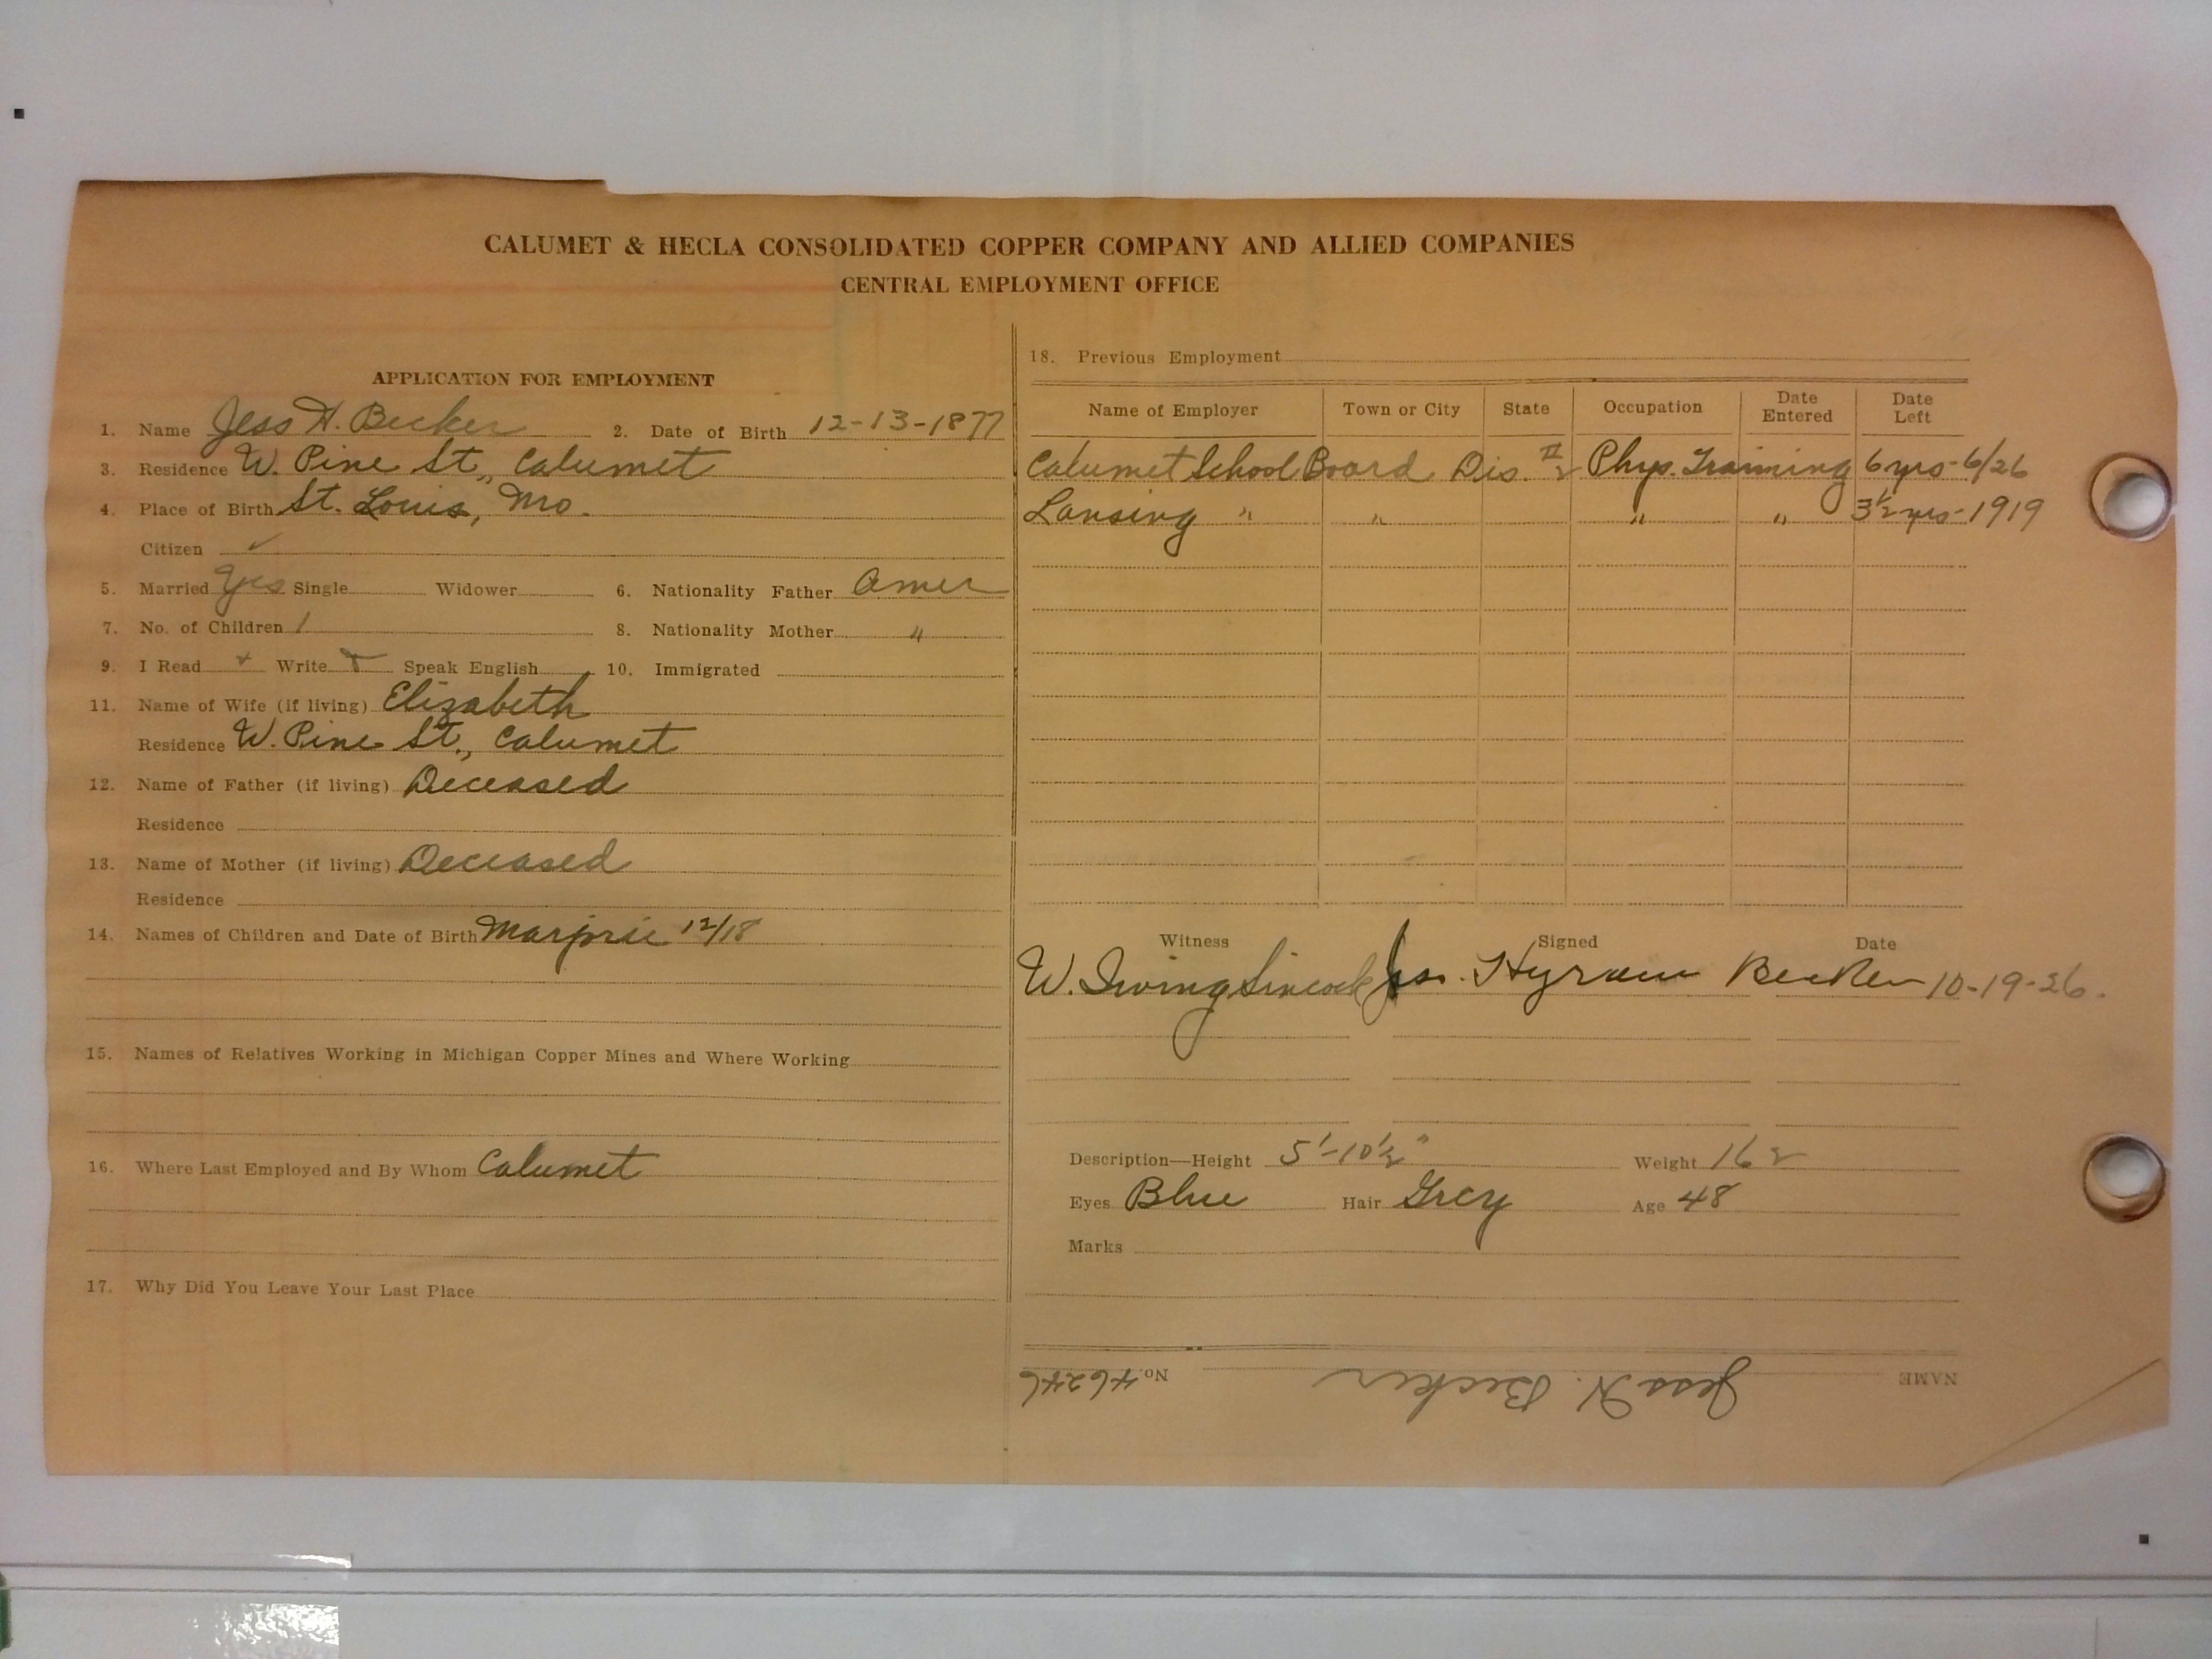 CALUMET & HECLA CONSOLIDATED COPPER COMPANY AND ALLIED COMPANIES
CENTRAL EMPLOYMENT OFFICE
APPLICATION FOR EMPLOYMENT
1. Name Jess H. Becker 2. Date of Birth 12-13-1877
3. Residence W. Pine St., Calumet
4. Place of Birth St. Louis, Mo.
Citizen ✓
5. Married Yes Single Widower 6. Nationality Father Amer
7. No. of Children 1 8. Nationality Mother "
9. I Read Write Speak English 10. Immigrated
11. Name of Wife (if living) Elizabeth
Residence W. Pine St., Calumet
12. Name of Father (if living) Deceased
Residence
13. Name of Mother (if living) Deceased
Residence
14. Names of Children and Date of Birth Marjorie 12/18
15. Names of Relatives Working in Michigan Copper Mines and Where Working
16. Where Last Employed and By Whom Calumet
17. Why Did You Leave Your Last Place
18. Previous Employment
Name of Employer Town or City State Occupation Date Entered Date Left
Calumet School Board Dis. Phys. Training 6 yrs - 6/26
Lansing " " " " 3½ yrs - 1919
Witness Signed Date
W. Irving Sincock Jess. Hyram Becker 10-19-26.
Description—Height 5'-10½" Weight 162
Eyes Blue Hair Grey Age 48
Marks
NAME Jess H. Becker No. 46246